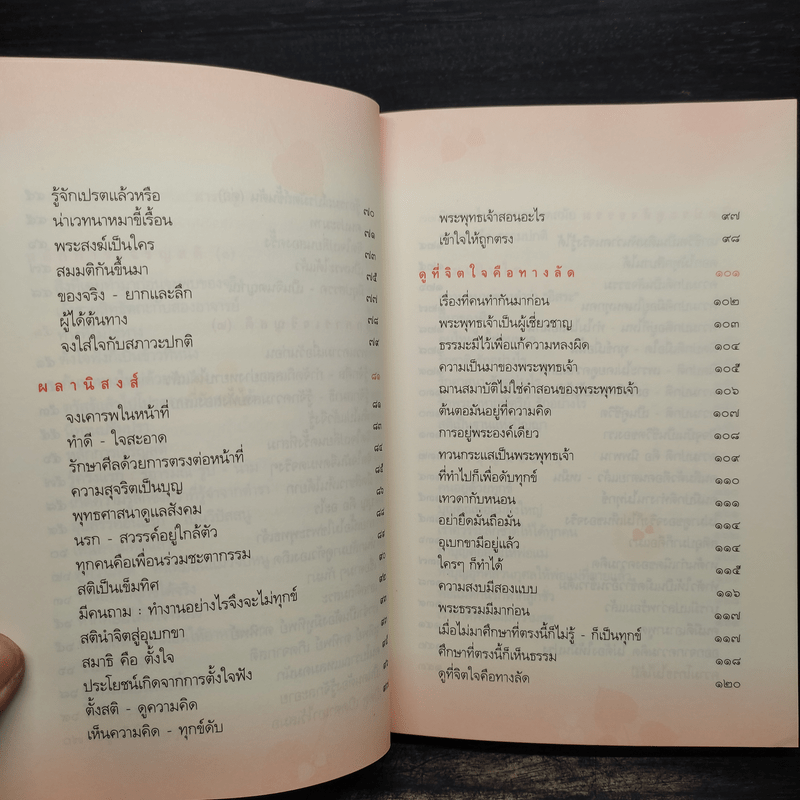 รู้จักเปรตแล้วหรือ ๗๐
น่าเวทนาหมาขี้เรื้อน ๗๑
พระสงฆ์เป็นใคร ๗๓
สมมติกันขึ้นมา ๗๕
ของจริง - ยากและลึก ๗๗
ผู้ได้ต้นทาง ๗๘
จงใส่ใจกับสภาวะปกติ ๗๙
ผลานิสงส์ ๘๑
จงเคารพในหน้าที่ ๘๑
ทำดี - ใจสะอาด ๘๓
รักษาศีลด้วยการตรงต่อหน้าที่ ๘๔
ความสุจริตเป็นบุญ ๘๕
พุทธศาสนาดูแลสังคม ๘๖
นรก - สวรรค์อยู่ใกล้ตัว ๘๘
ทุกคนคือเพื่อนร่วมชะตากรรม
สติเป็นเข็มทิศ
มีคนถาม : ทำงานอย่างไรจึงจะไม่ทุกข์
สตินำจิตสู่อุเบกขา
สมาธิ คือ ตั้งใจ
ประโยชน์เกิดจากการตั้งใจฟัง
ตั้งสติ - ดูความคิด
เห็นความคิด - ทุกข์ดับ
พระพุทธเจ้าสอนอะไร ๙๗
เข้าใจให้ถูกตรง ๙๘
ดูที่จิตใจคือทางลัด ๑๐๑
เรื่องที่คนทำกันมาก่อน ๑๐๒
พระพุทธเจ้าเป็นผู้เชี่ยวชาญ ๑๐๓
ธรรมะมีไว้เพื่อแก้ความหลงผิด ๑๐๔
ความเป็นมาของพระพุทธเจ้า ๑๐๕
ฌานสมาบัติไม่ใช่คำสอนของพระพุทธเจ้า ๑๐๖
ต้นตอมันอยู่ที่ความคิด ๑๐๗
การอยู่พระองค์เดียว ๑๐๘
ทวนกระแสเป็นพระพุทธเจ้า ๑๐๙
ที่ทำไปก็เพื่อดับทุกข์ ๑๑๐
เทวดากับหนอน ๑๑๑
อย่ายึดมั่นถือมั่น ๑๑๔
อุเบกขามีอยู่แล้ว ๑๑๔
ใครๆ ก็ทำได้ ๑๑๕
ความสงบมีสองแบบ ๑๑๖
พระธรรมมีมาก่อน ๑๑๗
เมื่อไม่มาศึกษาที่ตรงนี้ก็ไม่รู้ - ก็เป็นทุกข์ ๑๑๗
ศึกษาที่ตรงนี้ก็เห็นธรรม ๑๑๘
ดูที่จิตใจคือทางลัด ๑๒๐